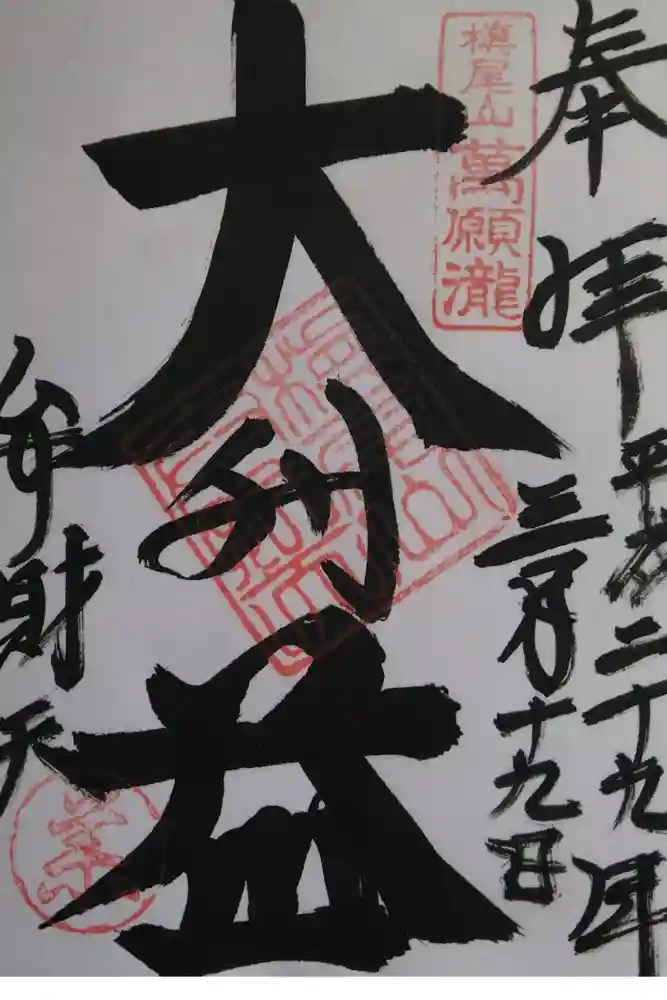 奉拝
平成二十九年
三月十九日
槙尾山萬願瀧
大利益
弁財天